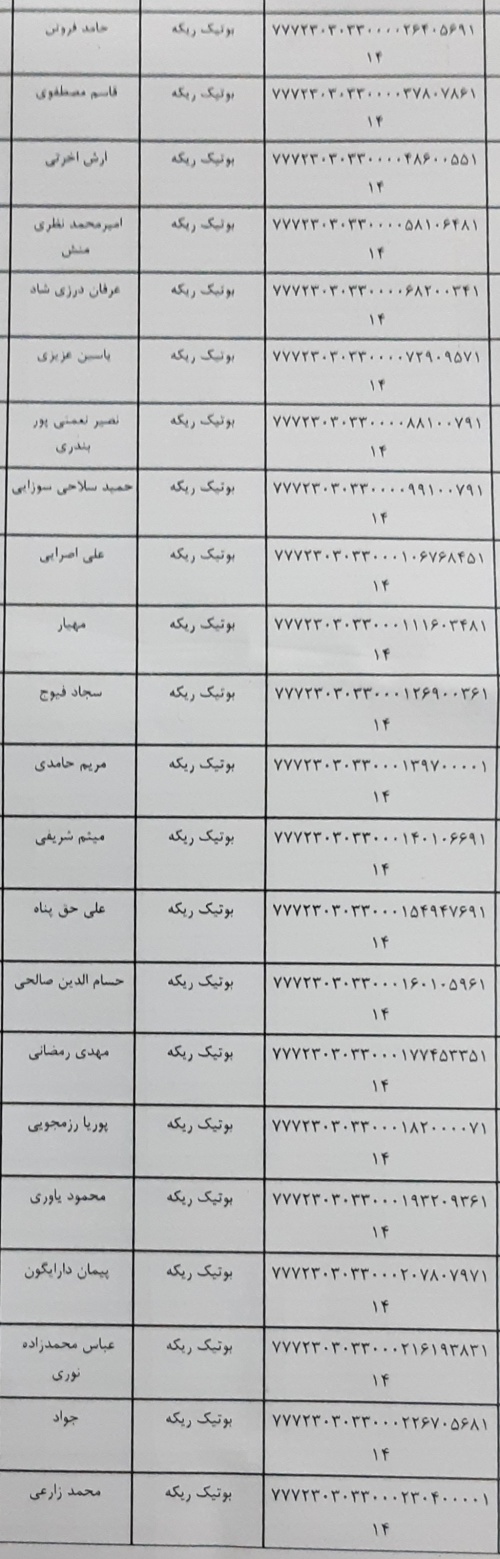 ۷۷۷۲۳۰۳۰۳۳۰۰۰۰۲۶۴۰۵۶۹۱ بوتیک ریکه حامد فروتن
۱۴
۷۷۷۲۳۰۳۰۳۳۰۰۰۰۳۷۸۰۷۸۶۱ بوتیک ریکه قاسم مصطفوی
۱۴
۷۷۷۲۳۰۳۰۳۳۰۰۰۰۴۸۶۰۰۵۵۱ بوتیک ریکه ارش اخرتی
۱۴
۷۷۷۲۳۰۳۰۳۳۰۰۰۰۵۸۱۰۶۴۸۱ بوتیک ریکه امیرمحمد نظری
۱۴ منش
۷۷۷۲۳۰۳۰۳۳۰۰۰۰۶۸۲۰۰۳۴۱ بوتیک ریکه عرفان درزی شاد
۱۴
۷۷۷۲۳۰۳۰۳۳۰۰۰۰۷۲۹۰۹۵۷۱ بوتیک ریکه یاسین عزیزی
۱۴
۷۷۷۲۳۰۳۰۳۳۰۰۰۰۸۸۱۰۰۷۹۱ بوتیک ریکه نصیر نعمتی پور
۱۴ بندری
۷۷۷۲۳۰۳۰۳۳۰۰۰۰۹۹۱۰۰۷۹۱ بوتیک ریکه حمید سلاحی سوزایی
۱۴
۷۷۷۲۳۰۳۰۳۳۰۰۰۱۰۶۷۶۸۴۵۱ بوتیک ریکه علی اصرایی
۱۴
۷۷۷۲۳۰۳۰۳۳۰۰۰۱۱۱۶۰۳۴۸۱ بوتیک ریکه مهیار
۱۴
۷۷۷۲۳۰۳۰۳۳۰۰۰۱۲۶۹۰۰۳۶۱ بوتیک ریکه سجاد فیوج
۱۴
۷۷۷۲۳۰۳۰۳۳۰۰۰۱۳۹۷۰۰۰۰۱ بوتیک ریکه مریم حامدی
۱۴
۷۷۷۲۳۰۳۰۳۳۰۰۰۱۴۰۱۰۶۶۹۱ بوتیک ریکه میثم شریفی
۱۴
۷۷۷۲۳۰۳۰۳۳۰۰۰۱۵۴۹۴۷۶۹۱ بوتیک ریکه علی حق پناه
۱۴
۷۷۷۲۳۰۳۰۳۳۰۰۰۱۶۰۱۰۵۹۶۱ بوتیک ریکه حسام الدین صالحی
۱۴
۷۷۷۲۳۰۳۰۳۳۰۰۰۱۷۷۴۵۳۳۵۱ بوتیک ریکه مهدی رمضانی
۱۴
۷۷۷۲۳۰۳۰۳۳۰۰۰۱۸۲۰۰۰۰۷۱ بوتیک ریکه پوریا رزمجویی
۱۴
۷۷۷۲۳۰۳۰۳۳۰۰۰۱۹۳۲۰۹۳۶۱ بوتیک ریکه محمود یاوری
۱۴
۷۷۷۲۳۰۳۰۳۳۰۰۰۲۰۷۸۰۷۹۷۱ بوتیک ریکه پیمان دارایگون
۱۴
۷۷۷۲۳۰۳۰۳۳۰۰۰۲۱۶۱۹۳۸۳۱ بوتیک ریکه عباس محمدزاده
۱۴ نوری
۷۷۷۲۳۰۳۰۳۳۰۰۰۲۲۶۷۰۵۶۸۱ بوتیک ریکه جواد
۱۴
۷۷۷۲۳۰۳۰۳۳۰۰۰۲۳۰۴۰۰۰۰۱ بوتیک ریکه محمد زارعی
۱۴